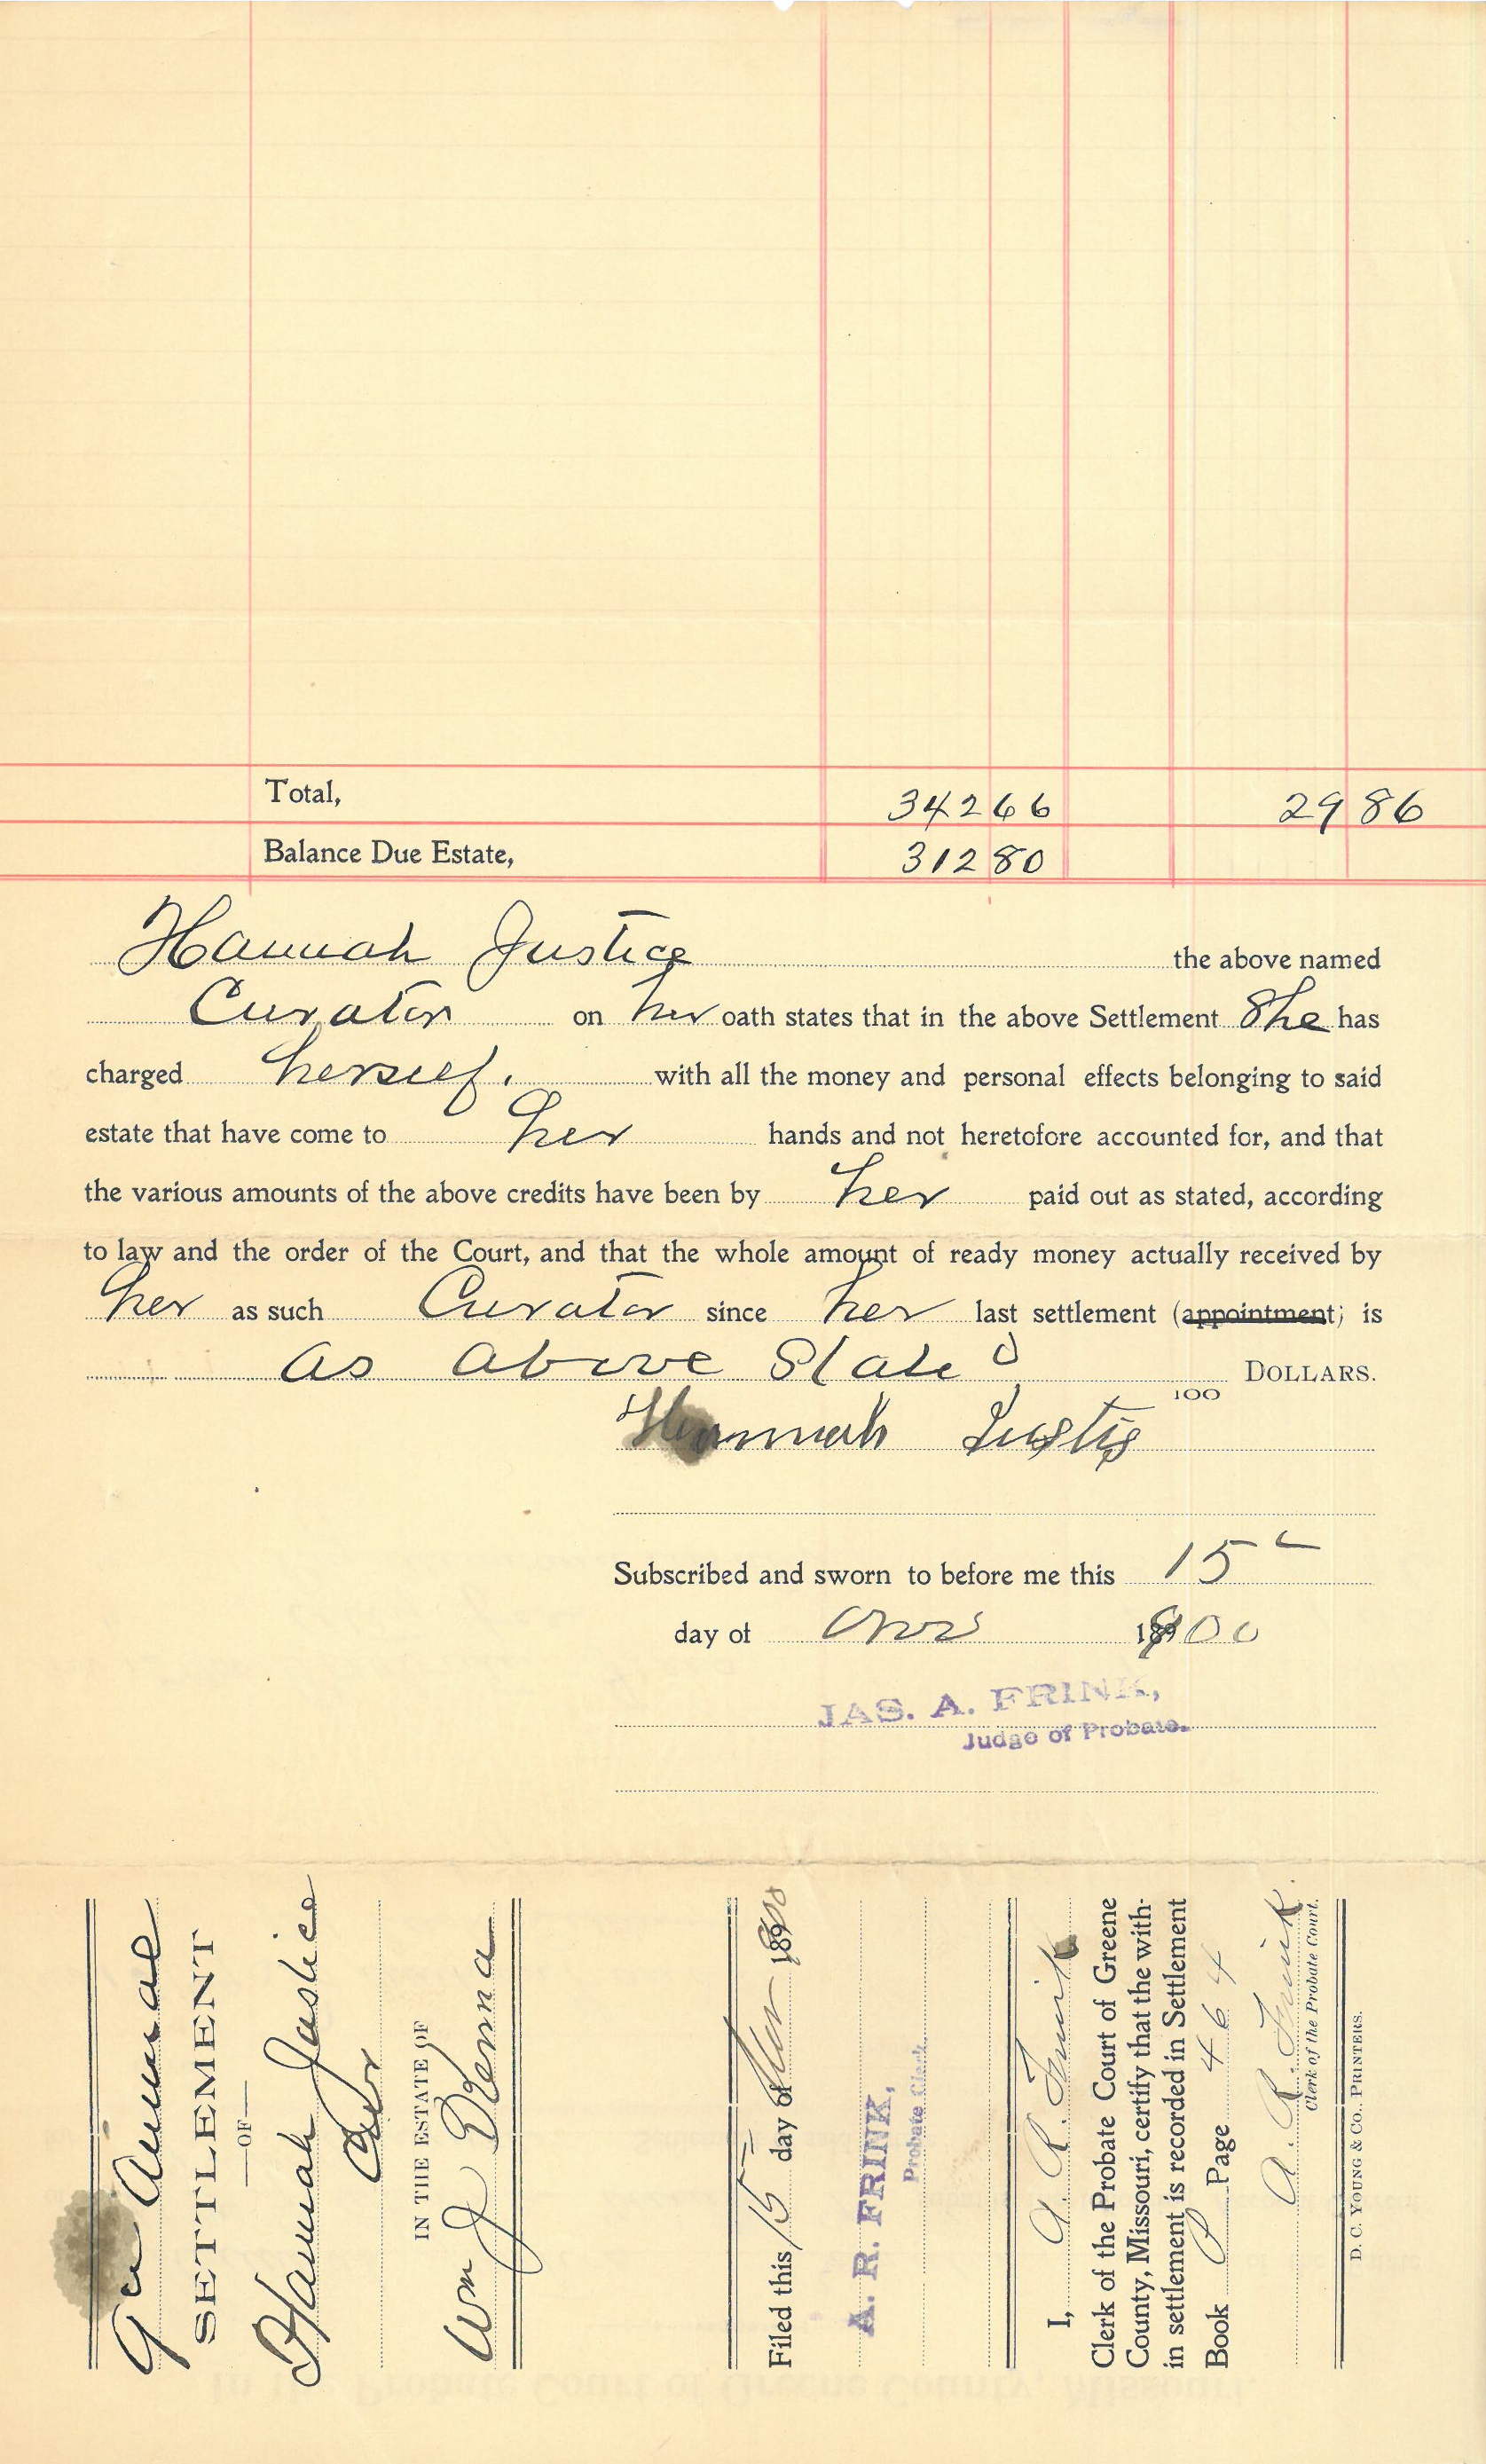 Total, 342 66 29 86
Balance Due Estate, 312 80
Hannah Justice the above named
Curator on her oath states that in the above Settlement She has
charged herself. with all the money and personal effects belonging to said
estate that have come to her hands and not heretofore accounted for, and that
the various amounts of the above credits have been by her paid out as stated, according
to law and the order of the Court, and that the whole amount of ready money actually received by
her as such Curator since her last settlement (appointment) is
as above Stated DOLLARS.
100
Hannah Justis
Subscribed and sworn to before me this 15
day of Nov 1900
JAS. A. FRINK,
Judge of Probate.
9th Annual
SETTLEMENT
—OF—
Hannah Justice
Cur
IN THE ESTATE OF
Wm J
Filed this 15 day of Nov 1900
A. R. FRINK,
Probate Clerk.
I, A. R. Frink
Clerk of the Probate Court of Greene
County, Missouri, certify that the with-
in settlement is recorded in Settlement
Book P Page 464
A. R. Frink
Clerk of the Probate Court.
D. C. YOUNG & CO., PRINTERS.